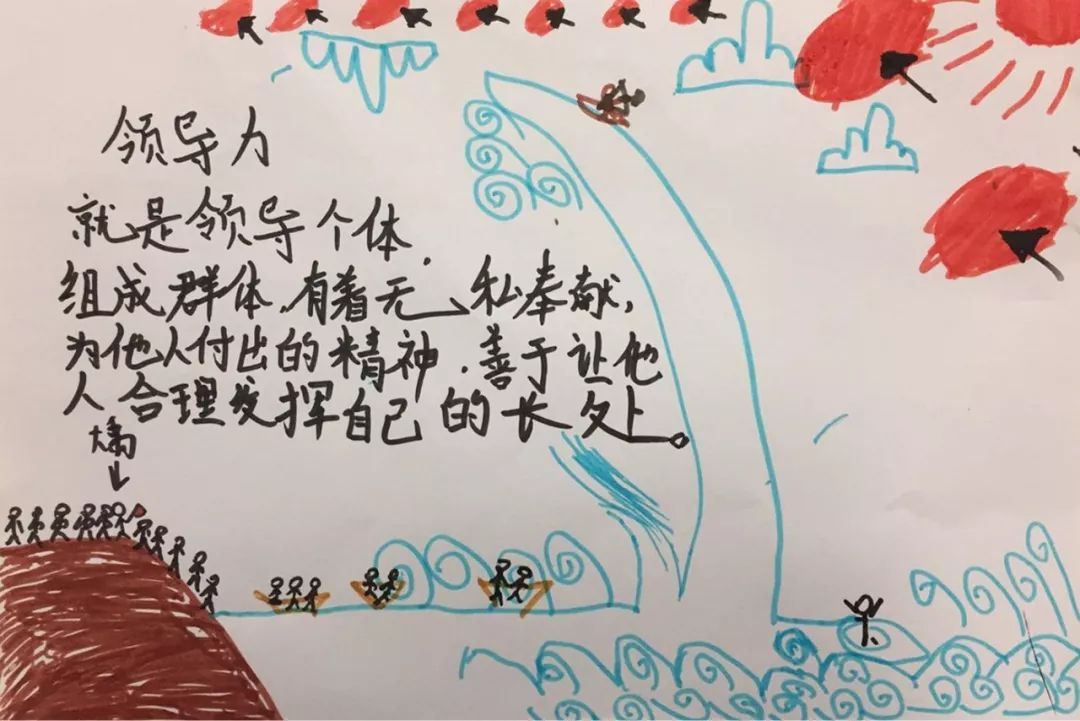 领导力
就是领导个体，
组成群体，有着无私奉献，
为他人付出的精神，善于让他
人合理发挥自己的长处。
大禹